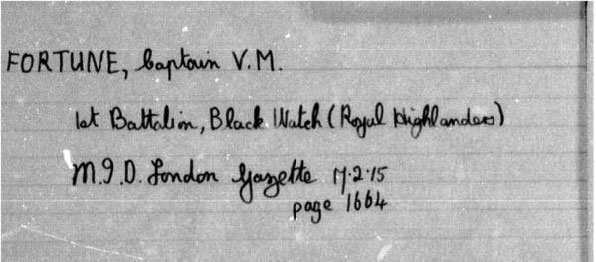 FORTUNE, Captain V.M.
1st Battalion, Black Watch (Royal Highlanders)
M.I.D. London Gazette 17.2.15
page 1664